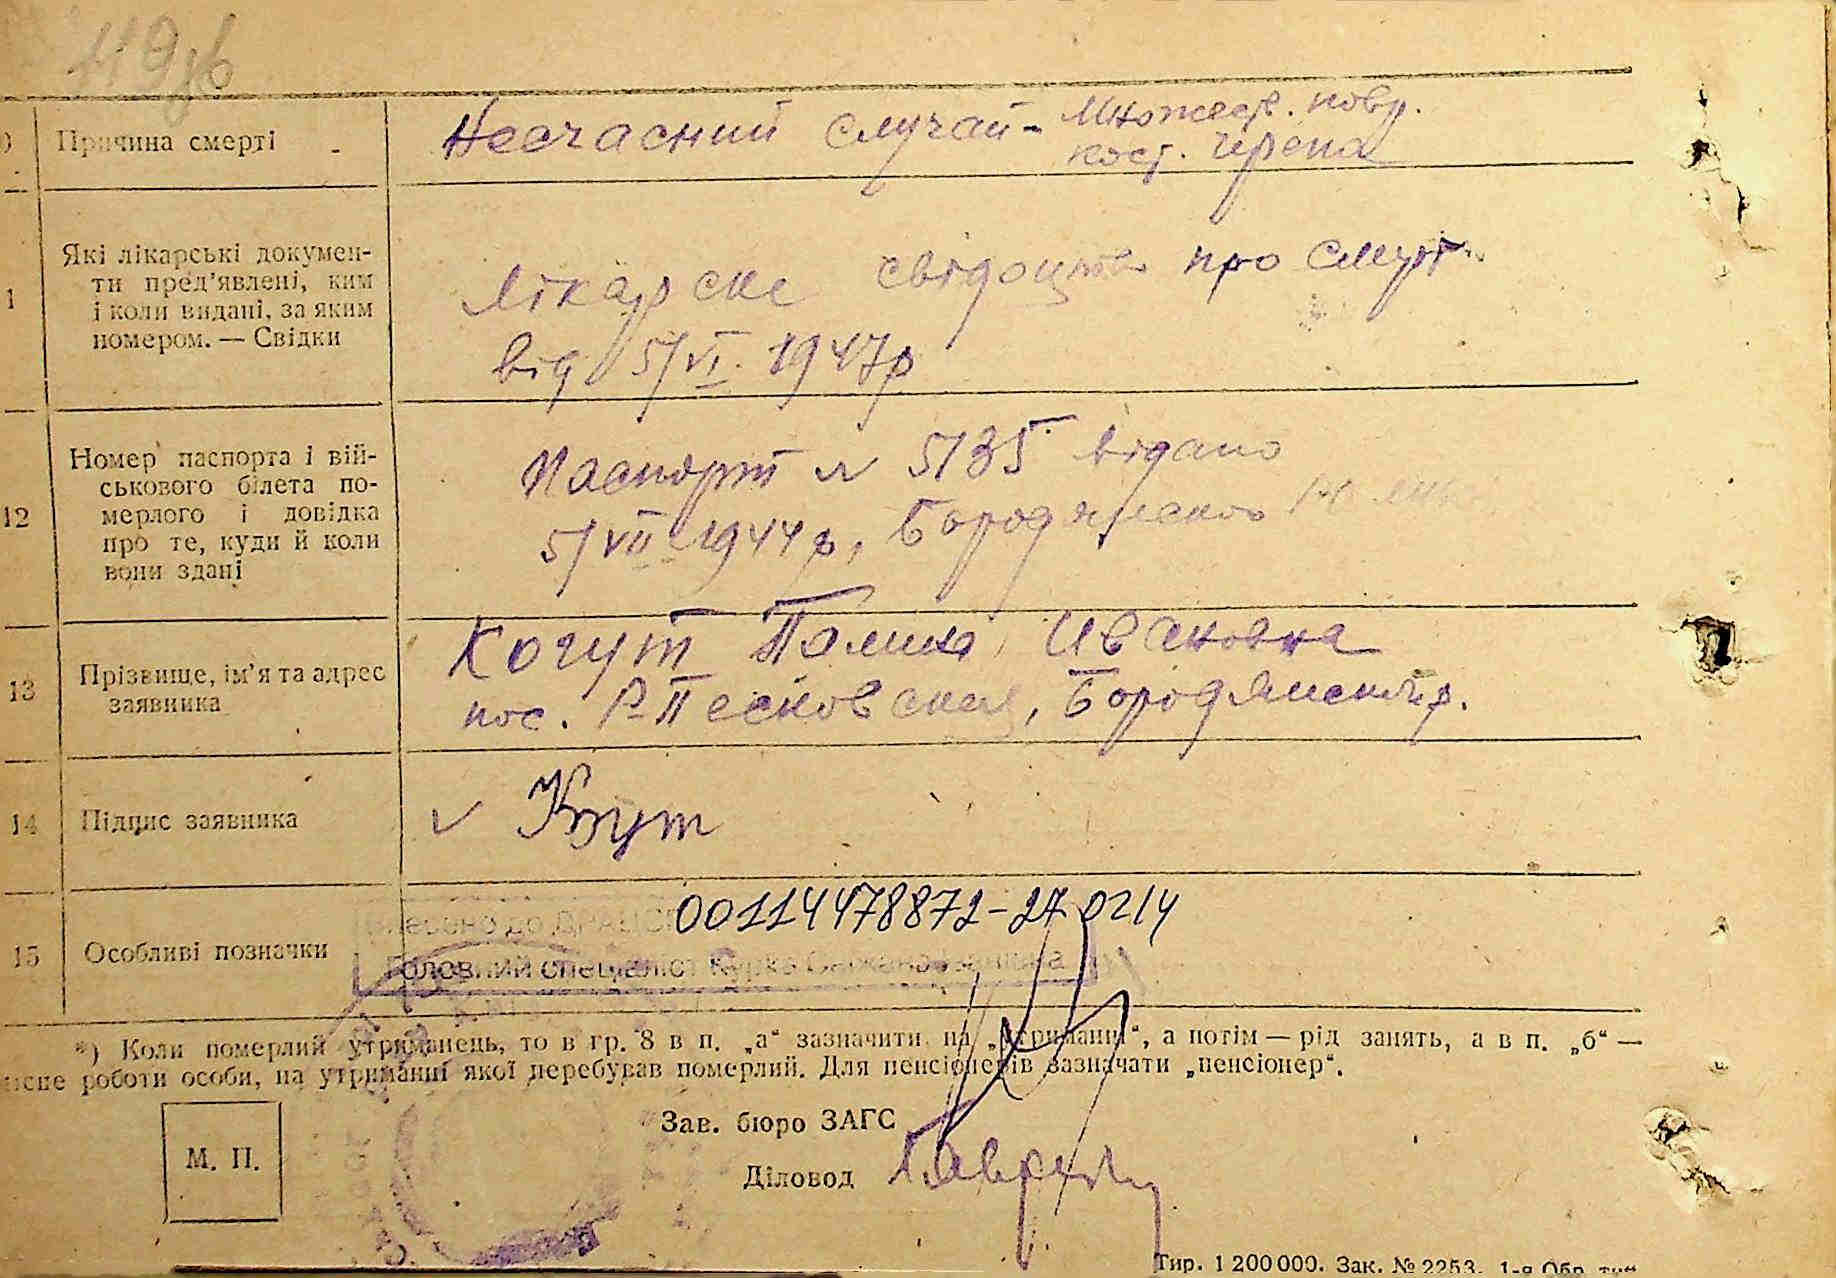 119зв
Причина смерті
Несчасний случай - Множеств. повр.
кост. черепа
1
Які лікарські докумен-
ти пред'явлені, ким
і коли видані, за яким
номером. — Свідки
Лікарске свідоцтво про смерт
від 5/VI. 1947р
12
Номер паспорта і вій-
ськового білета по-
мерлого і довідка
про те, куди й коли
вони здані
Паспорт № 5135 відано
5/VII 1944р, Бородянской
13
Прізвище, ім'я та адрес
заявника
Когут Полина Ивановна
пос. Р-Песковская, Бородянск. р.
14
Підпис заявника
Когут
15
Особливі позначки
00114478872-27.0214
Внесено до ДРАЦСГ
Головний спеціаліст
*) Коли померлий утриманець, то в гр. 8 в п. „а“ зазначити на „утриманні“, а потім — рід занять, а в п. „б“ —
роботи особи, на утриманні якої перебував померлий. Для пенсіонерів зазначати „пенсіонер“.
Зав. бюро ЗАГС
М. П.
Діловод
Тир. 1 200 000. Зак. № 2253. 1-а Обр. тип